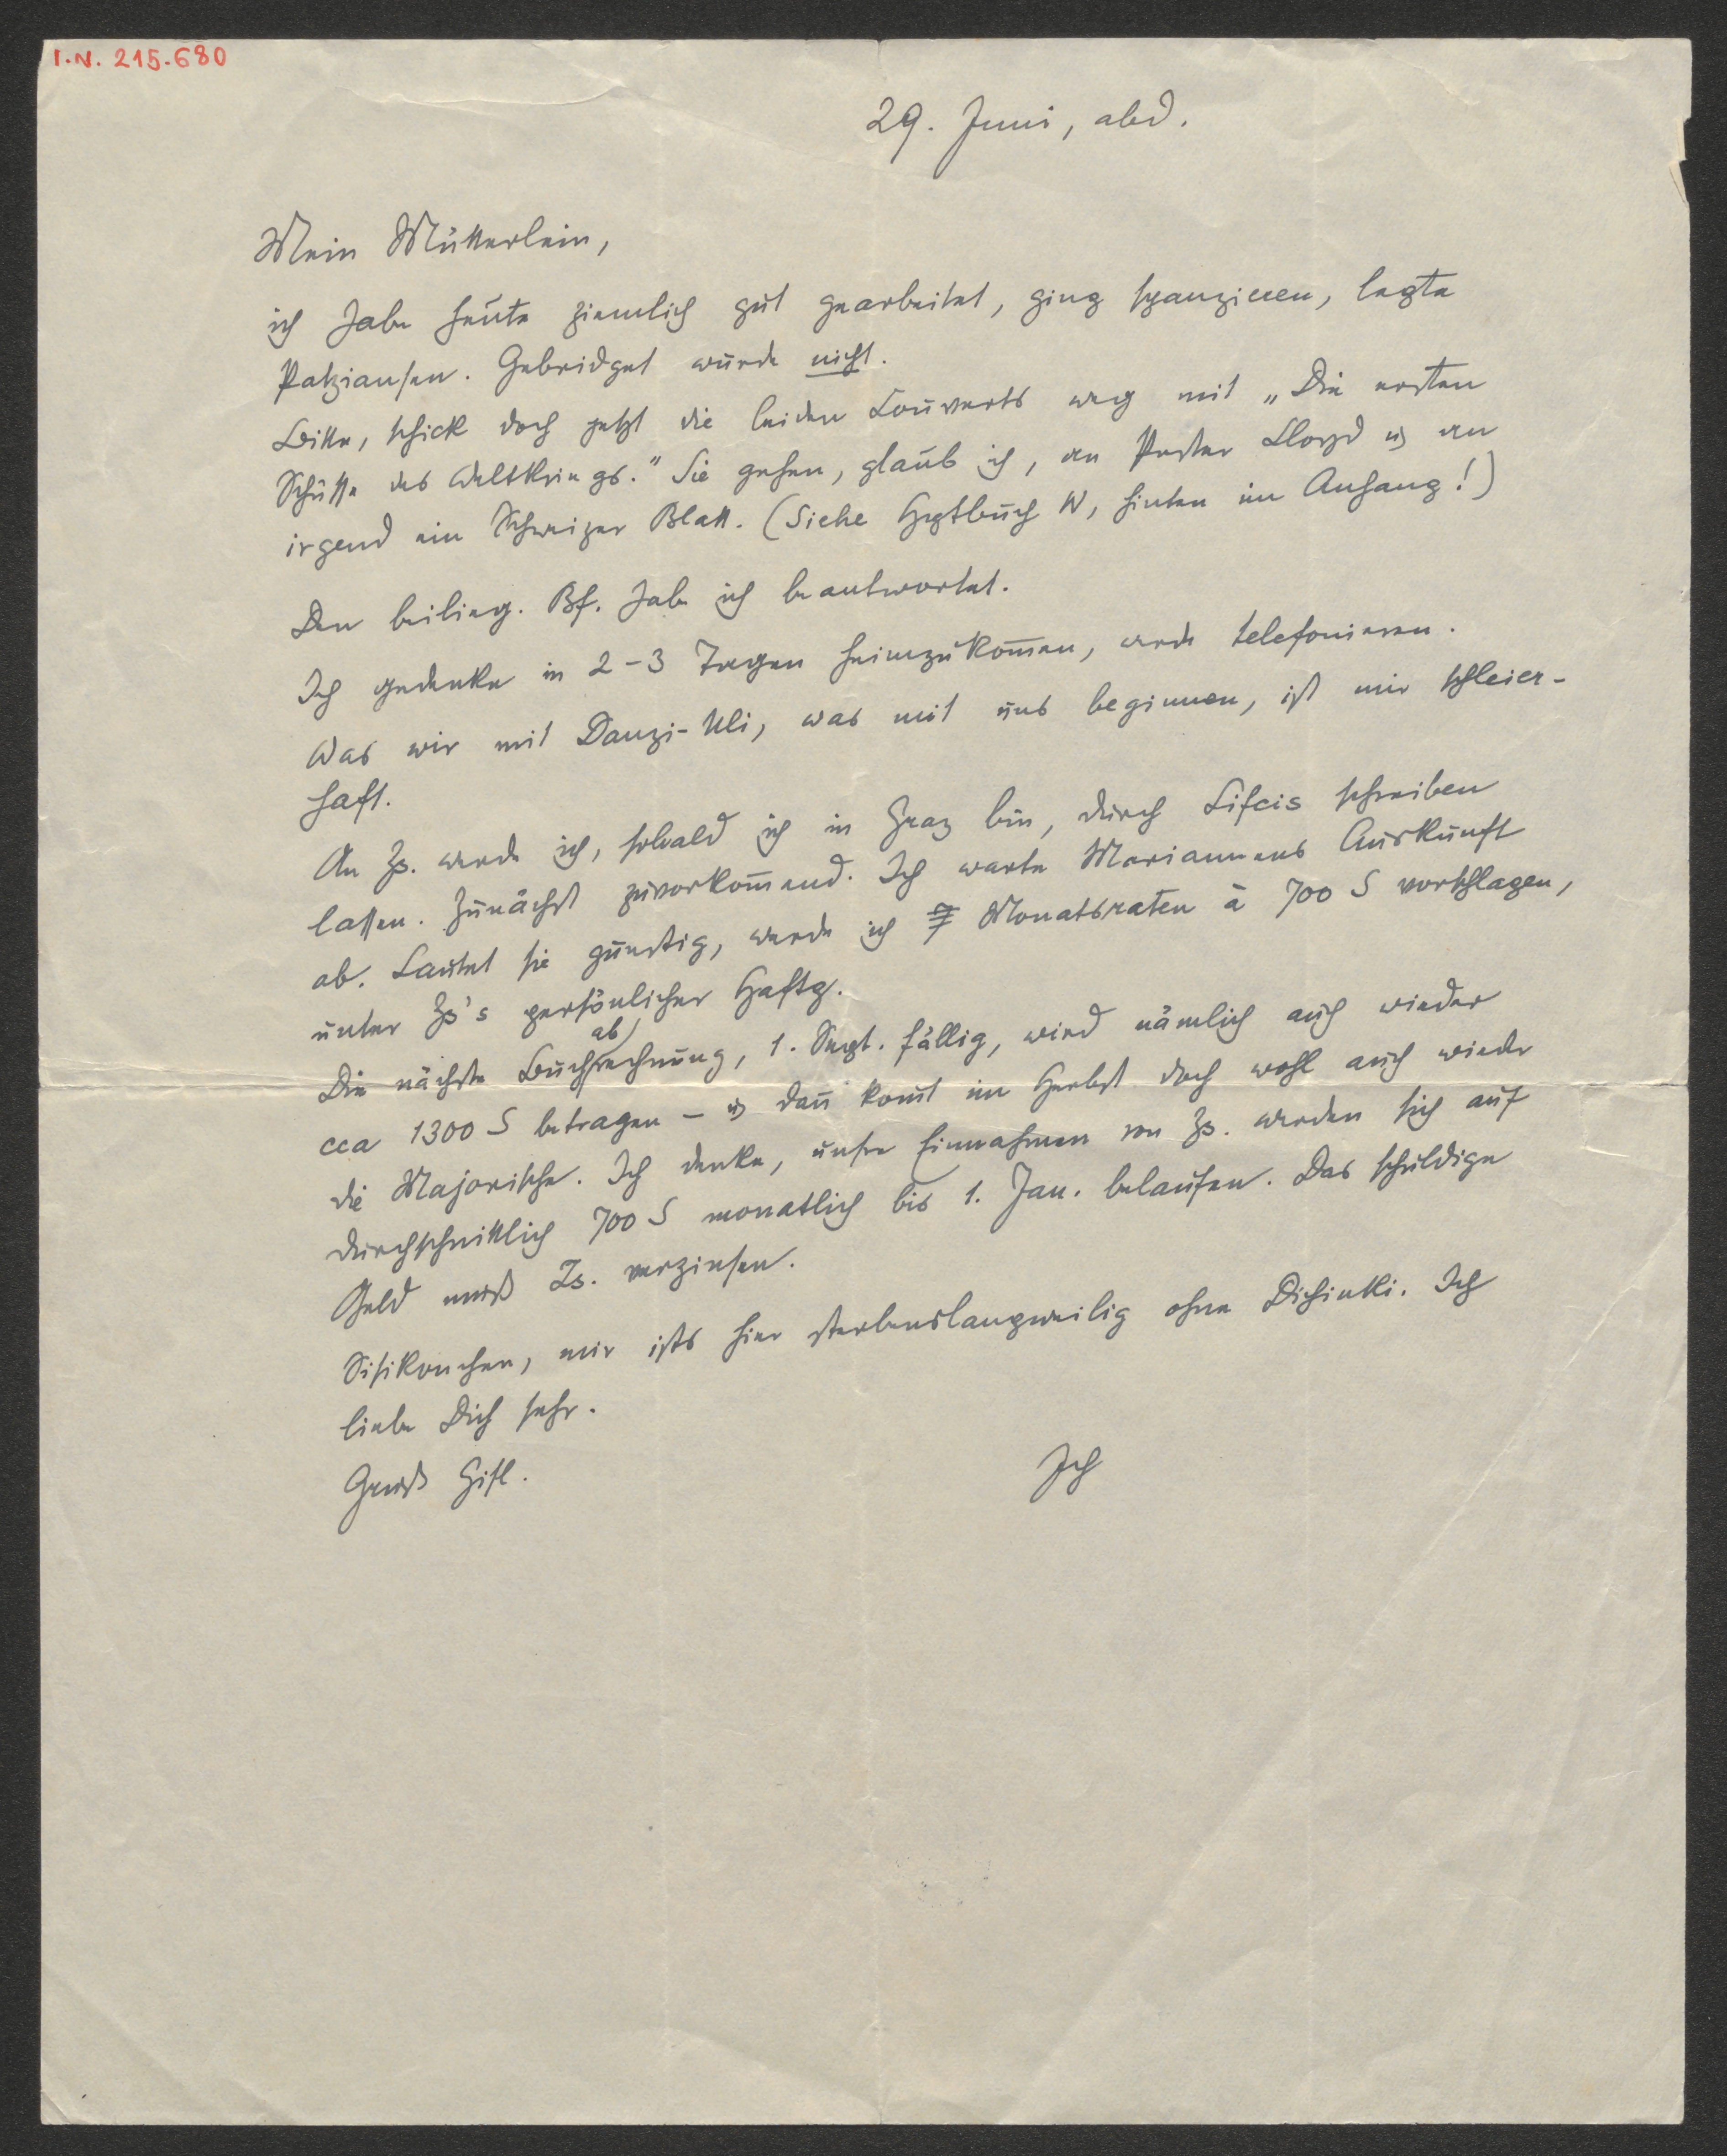 I.N. 215.680
29. Juni, abd.
Mein Mütterlein,
ich habe heute ziemlich gut gearbeitet, ging spazieren, legte
Patziansen. Gebridget wurde nicht.
Bitte, schick doch jetzt die beiden Couverts weg mit „Die ersten
Schüsse des Weltkriegs." Sie gehen, glaub ich, an Pester Lloyd u an
irgend ein Schweizer Blatt. (Siehe Hptbuch W, hinten im Anhang!)
Den beilieg. Bf. habe ich beantwortet.
Ich gedenke in 2-3 Tagen heimzukom̄en, werde telefonieren.
Was wir mit Danzi-Uli, was mit uns beginnen, ist mir schleier-
haft.
An Zs. werde ich, sobald ich in Graz bin, durch schreiben
lassen. Zunächst zuvorkom̄end. Ich warte Mariannens Auskunft
ab. Lautet sie günstig, werde ich 7 Monatsraten à 700 S vorschlagen,
unter Zs's persönlicher Haftg.
Die nächste Buchabrechnung, 1. Sept. fällig, wird nämlich auch wieder
cca 1300 S betragen – u dan̄ kom̄t im Herbst doch wohl auch wieder
die Majorische. Ich denke, unsre Einnahmen von Zs. werden sich auf
durchschnittlich 700 S monatlich bis 1. Jan. belaufen. Das schuldige
Geld muß Zs. verzinsen.
Sisikonchen, mir ists hier sterbenslangweilig ohne Ich
liebe Dich sehr.
Gruß Gisl.
Ich